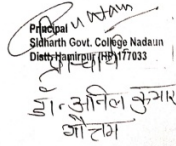 Principal
Sidharth Govt. College Nadaun
Distt. Hamirpur (HP)177033
प्राचार्य
डॉ. अनिल कुमार
गौतम